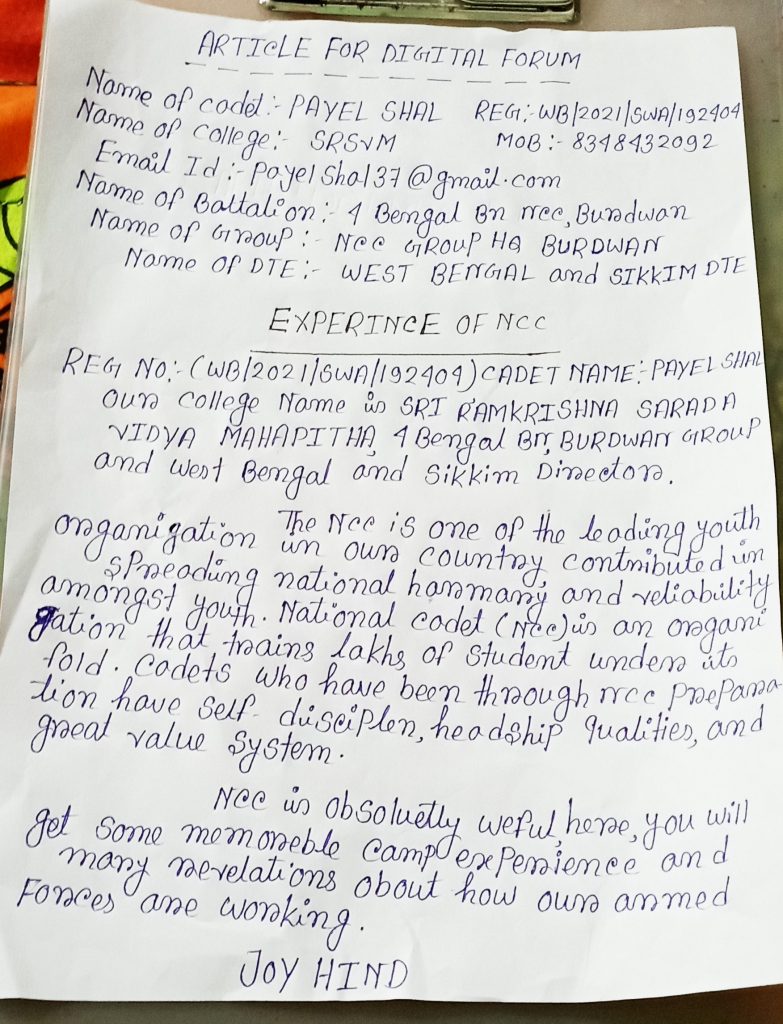 ARTICLE FOR DIGITAL FORUM
Name of cadet:- PAYEL SHAL REG:- WB/2021/SWA/192404
Name of college:- SRSVM MOB:- 8348432092
Email Id:- Payelshal37@gmail.com
Name of Battalion:- 4 Bengal Bn ncc, Burdwan
Name of Group:- NCC GROUP HQ BURDWAN
Name of DTE:- WEST BENGAL and SIKKIM DTE
EXPERINCE OF NCC
REG NO:- (WB/2021/SWA/192404) CADET NAME:- PAYEL SHAL
our college Name is SRI RAMKRISHNA SARADA
VIDYA MAHAPITHA, 4 Bengal Bn, BURDWAN GROUP
and West Bengal and Sikkim Director.
The Ncc is one of the leading youth
organigation in our country, contributed in
spreading national harmany and reliability
amongst youth. National cadet (Ncc) is an organi
gation that trains lakhs of student under its
fold. Cadets who have been through ncc prepara-
tion have self- disciplen, headship qualities, and
great value system.
Ncc is obsoluetly weful, here, you will
get some memoreble camp experience and
many revelations about how our armed
Forces are working.
JOY HIND